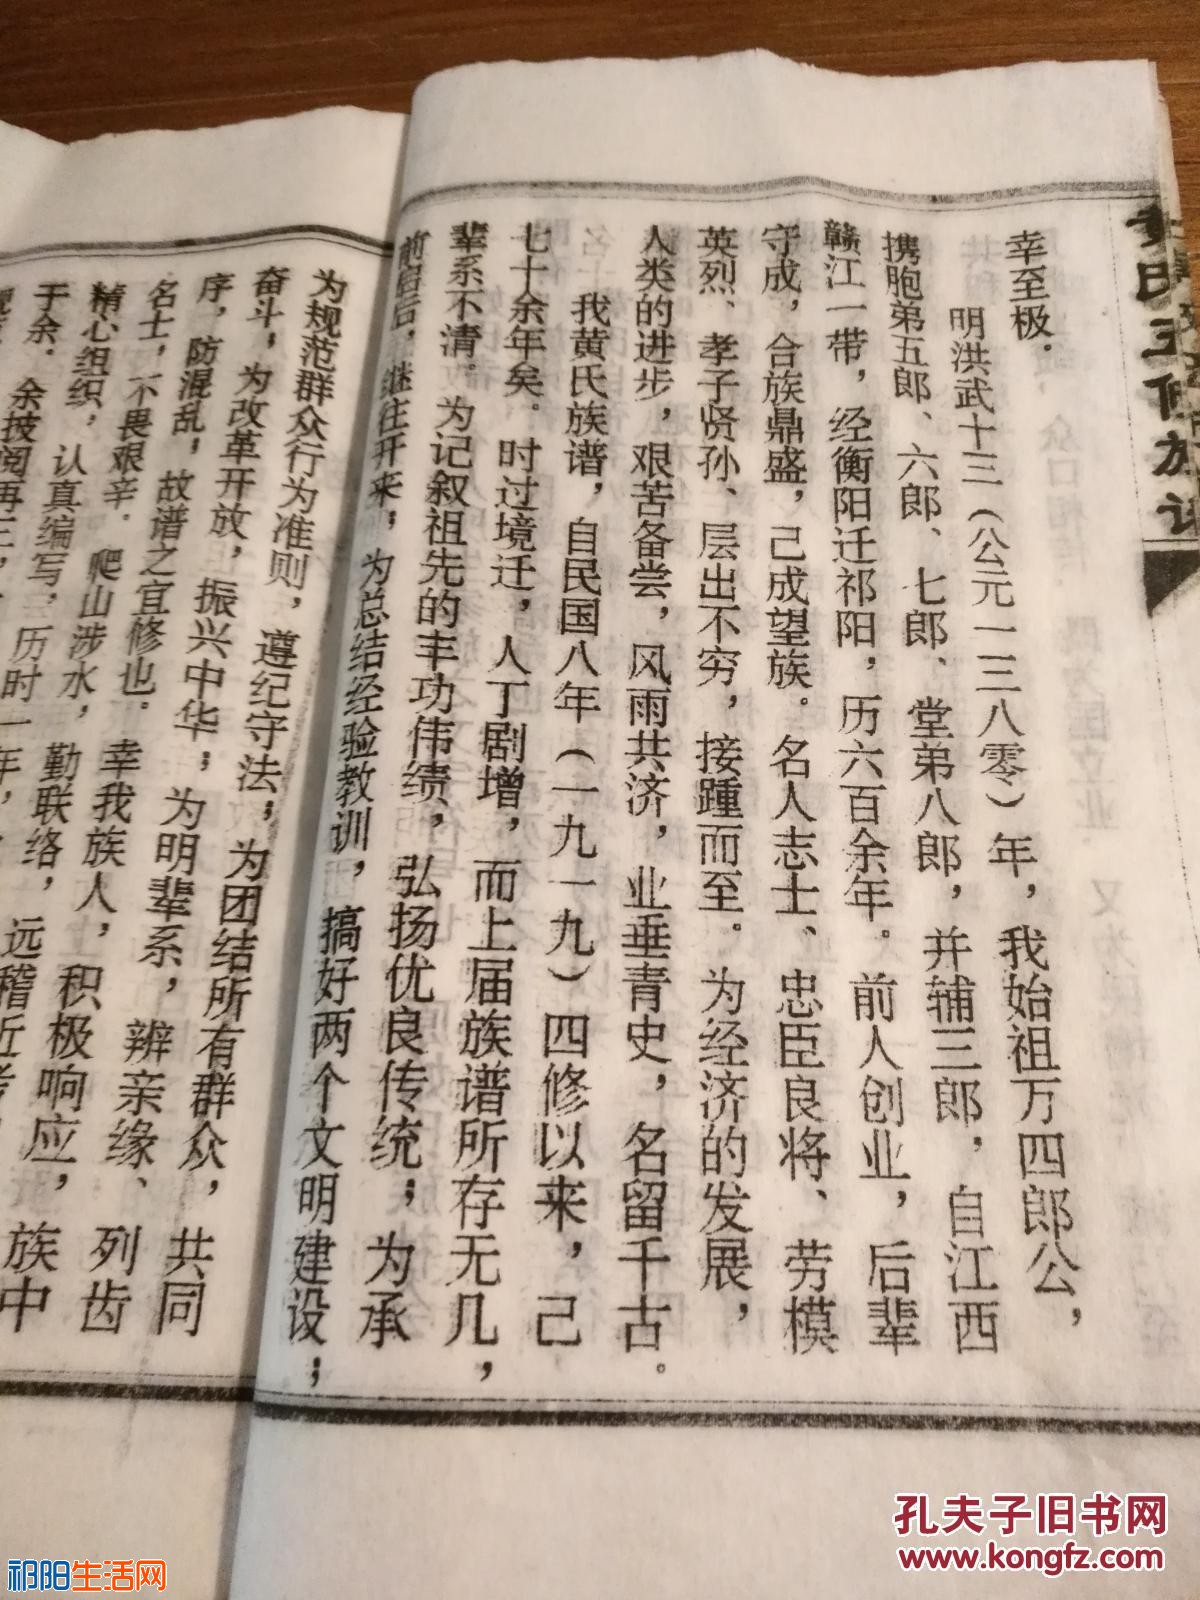 幸至极.
明洪武十三（公元一三八零）年，我始祖万四郎公，
携胞弟五郎、六郎、七郎、堂弟八郎，并辅三郎，自江西
赣江一带，经衡阳迁祁阳，历六百余年. 前人创业，后辈
守成，合族鼎盛，己成望族. 名人志士、忠臣良将、劳模
英烈、孝子贤孙、层出不穷，接踵而至. 为经济的发展，
人类的进步，艰苦备尝，风雨共济，业垂青史，名留千古。
我黄氏族谱，自民国八年（一九一九）四修以来，己
七十余年矣. 时过境迁，人丁剧增，而上届族谱所存无几，
辈系不清. 为记叙祖先的丰功伟绩，弘扬优良传统；为承
前启后，继往开来；为总结经验教训，搞好两个文明建设；
为规范群众行为准则，遵纪守法；为团结所有群众，共同
奋斗；为改革开放，振兴中华；为明辈系，辨亲缘、列齿
序，防混乱；故谱之宜修也. 幸我族人，积极响应，族中
名士，不畏艰辛. 爬山涉水，勤联络，远稽近
精心组织，认真编写，历时一年，
于余. 余技阅再三，
孔夫子旧书网
www.kongfz.com
祁阳生活网